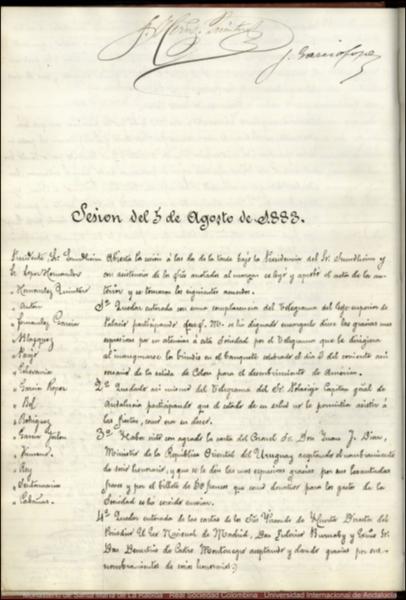 J. Hern. Quintero
J. Garcia Lopez
Sesion del 5 de Agosto de 1883.
Presidente, Sr. Sundheim
Sr. Lopez Hernandez
" Hernandez Quintero
" Fernandez Garcia
" Vazquez
" Garcia Lopez
" Bel
" Rodriguez
" Garcia
" Rey
" Cabañas.
Abierta la sesión á las de la tarde bajo la Presidencia del Sr. Sundheim y
con asistencia de los Sres anotados al margen se leyó y aprobó el acta de la an-
terior y se tomaron los siguientes acuerdos.
1º Quedar enterada con suma complacencia del telegrama del Jefe superior de
Palacio participando que S. M. se ha dignado encargarle diere las gracias mas
expresivas por su atencion á esta Sociedad por el telegrama que le dirigiera
al inaugurarse los brindis en el banquete celebrado el dia 3 del corriente ani-
versario de la salida de Colon para el descubrimiento de América.
2º Quedarlo asi mismo del telegrama del Sr. Capitan gral de
Andalucia participando que el estado de su salud no le permitia asistir á
las fiestas, como eran su deseo.
3º Haber visto con agrado la carta del Coronel Sr. Don Juan J. Diaz,
Ministro de la República Oriental del Uruguay aceptando el nombramiento
de socio honorario, y que se le den las mas expresivas gracias por sus levantadas
frases y por el billete de 50 francos que como donativo para los gastos de la
Sociedad se ha servido enviar.
4º Quedar enterada de las cartas de los Sres Vizconde de Director del
Periódico El Eco Nacional de Madrid, Don
Don Demetrio de Castro Montenegro aceptando y dando gracias por sus
nombramientos de socios honorarios.
Real Sociedad Colombina Universidad Internacional de Andalucía